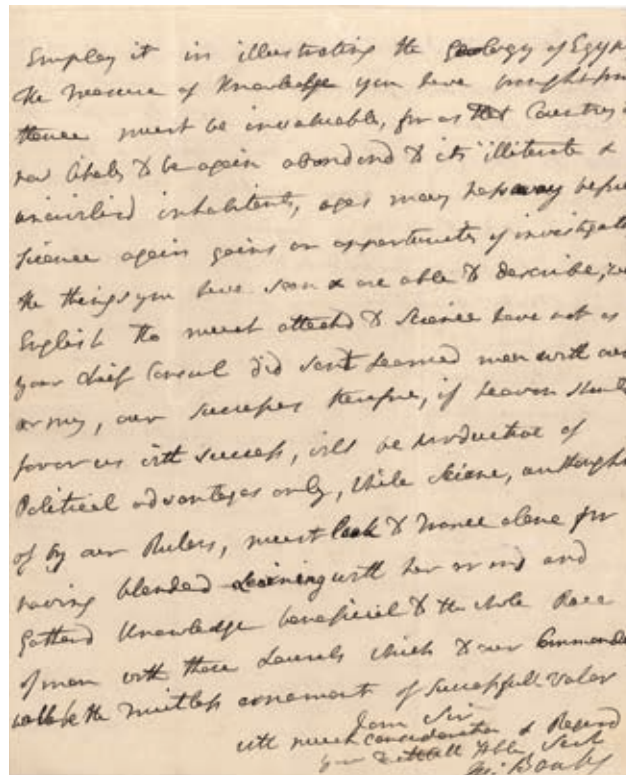 Employ it in illustrating the Geology of Egyp
the measure of Knowledge you have brought from
thence must be invaluable, for as that Country is
now likely to be again abandond to its illiterate &
uncivilizd inhabitants, ages may pass away before
science again gains an opportunity of investigat
the things you have seen & are able to describe, we
English tho much attachd to Science have not as
your chief Consul did sent learned men with our
army, our successes therefore, if heaven should
favor us with success, will be productive of
Political advantages only, while science, unthought
of by our Rulers, must look to France alone for
having blended Learning with her arms and
Gatherd Knowledge beneficial to the whole Race
of men with those Laurels which to our Commande
will be the fruitless ornament of successfull valor
I am Sir
with much consideration & Regard
your Servt
Jos: Banks